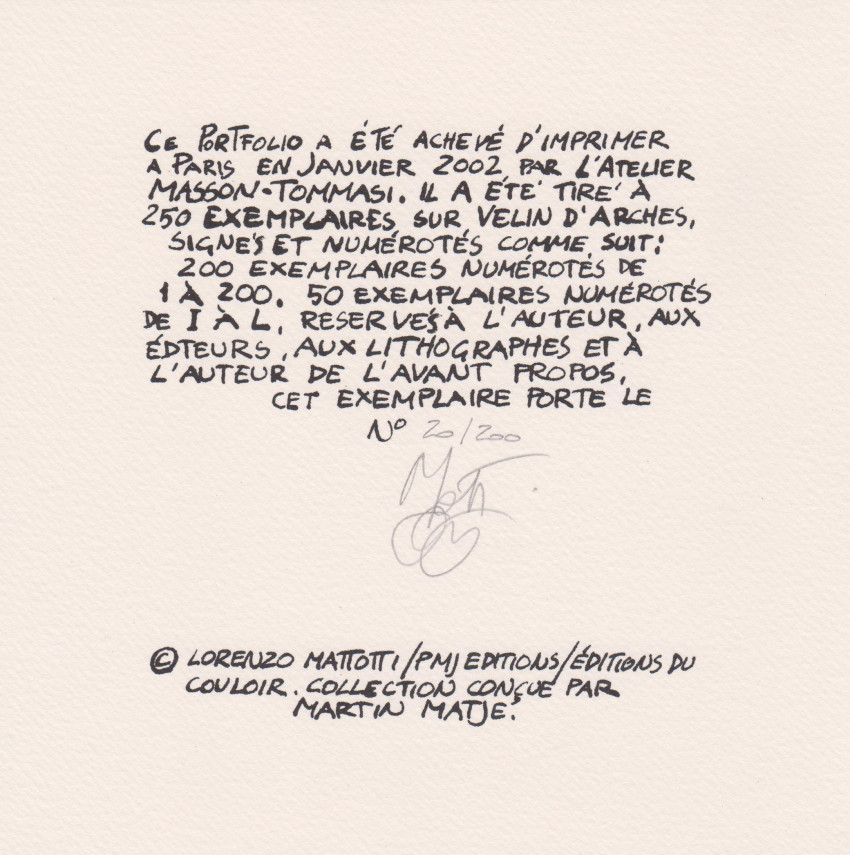 CE PORTFOLIO A ÉTÉ ACHEVÉ D'IMPRIMER
A PARIS EN JANVIER 2002, PAR L'ATELIER
MASSON-TOMMASI. IL A ÉTÉ TIRÉ À
250 EXEMPLAIRES SUR VELIN D'ARCHES,
SIGNÉS ET NUMÉROTÉS COMME SUIT:
200 EXEMPLAIRES NUMÉROTÉS DE
1 À 200. 50 EXEMPLAIRES NUMÉROTÉS
DE I À L, RESERVÉS À L'AUTEUR, AUX
ÉDTEURS, AUX LITHOGRAPHES ET À
L'AUTEUR DE L'AVANT PROPOS,
CET EXEMPLAIRE PORTE LE
N° 20/200
© LORENZO MATTOTTI/PMJ EDITIONS/ÉDITIONS DU
COULOIR. COLLECTION CONÇUE PAR
MARTIN MATJE.